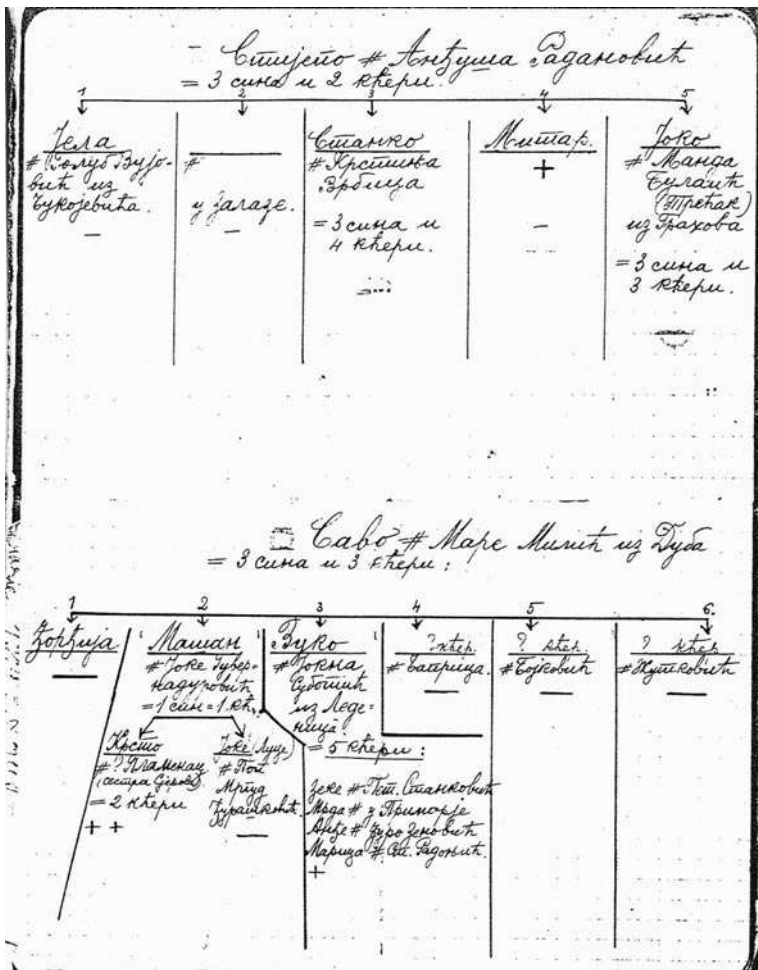 Стијепо # Анђуша Радановић
= 3 сина и 2 кћери.
1 2 3 4 5
Јела
# Голуб Вујо-
вић из
Ђукојевића.
—
#
у Залазе.
—
Станко
# Крстиња
Врбица
= 3 сина и
4 кћери.
Митар.
+
—
Јоко
# Манда
Булаић
(Трећак)
из Грахова
= 3 сина и
3 кћери.
Саво # Маре Милић из Дуба
= 3 сина и 3 кћери:
1 2 3 4 5 6.
Ђорђија
—
Машан
# Јоке Гувер-
надуровић
= 1 син = 1 кћ.
Крсто
# ? Пламенац
(сестра
= 2 кћери
+ +
Јоке (Луце)
# Поп
Мргуд
Ђурашковић.
—
Вуко
# Јокна
Суботић
из Леде-
ница
= 5 кћери:
Зеке # Пет. Станковић
Мрда # у Приморје
Анђе # Ђуро Зеновић
Марица # Ст. Радоњић.
+
? кћер.
# Батрица.
—
? кћер.
# Бојковић
—
? кћер
# Жутковић
—